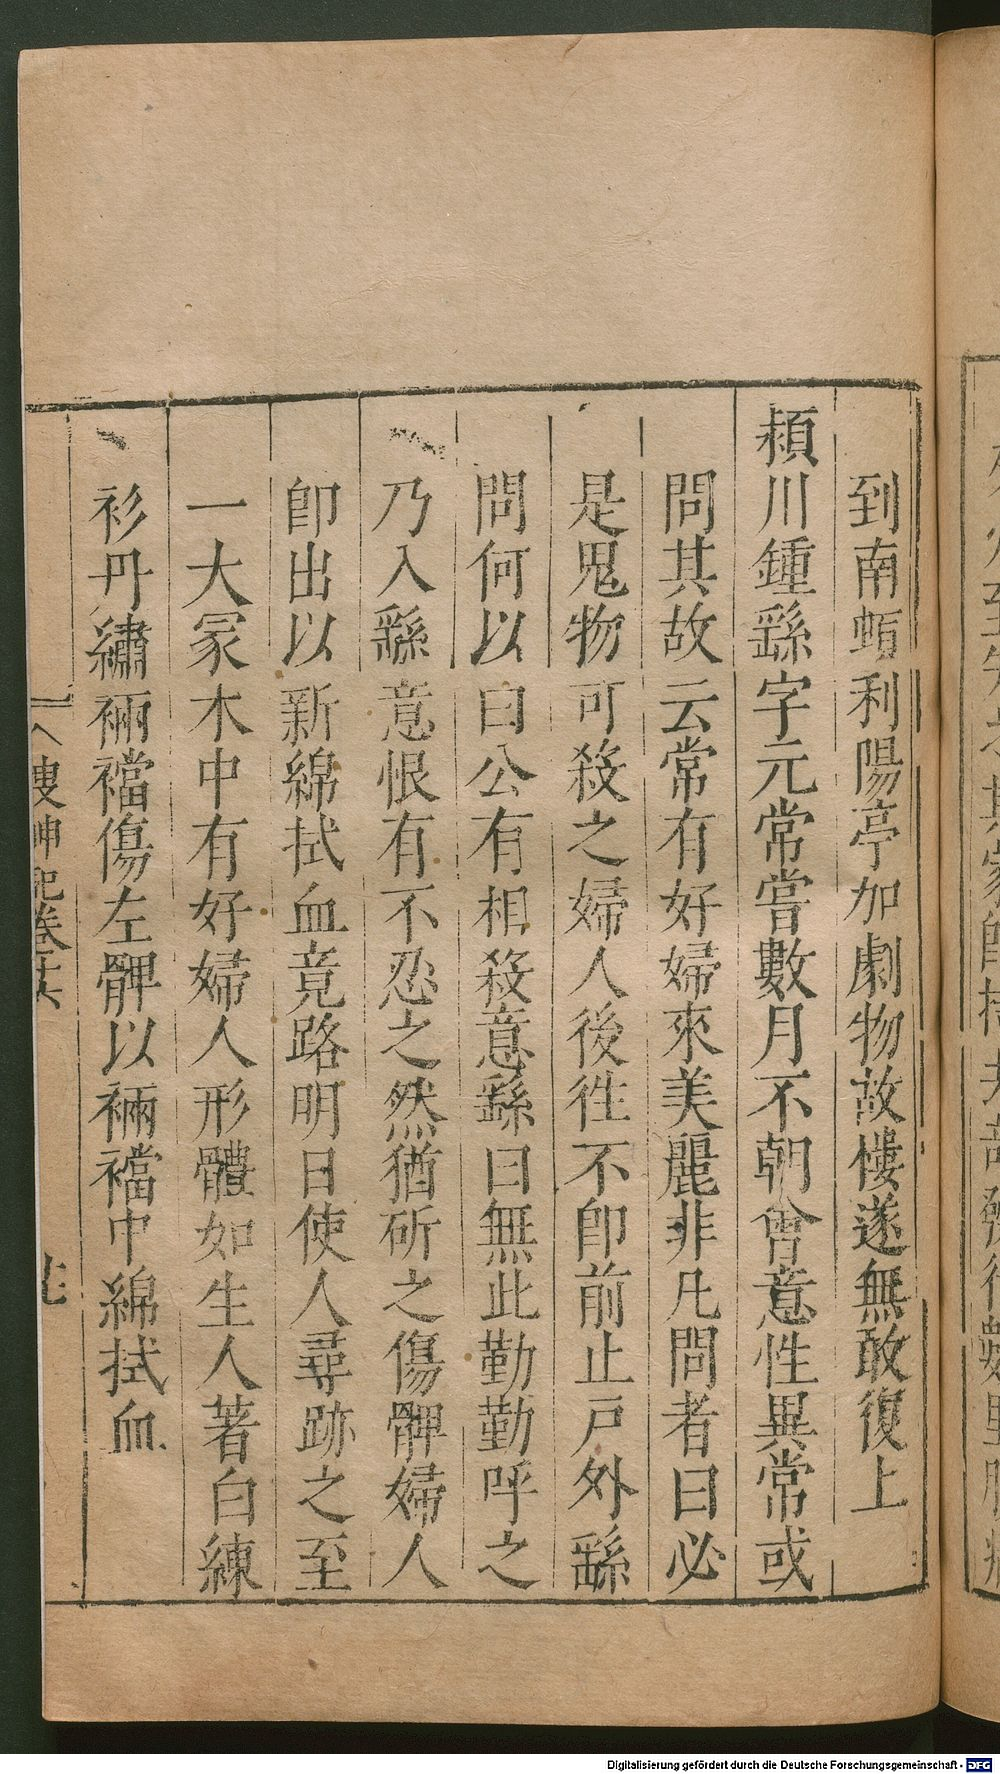 到南頓利陽亭加劇物故樓遂無敢復上
潁川鍾繇字元常嘗數月不朝會意性異常或
問其故云常有好婦來美麗非凡問者曰必
是鬼物可殺之婦人後往不卽前止戶外繇
問何以曰公有相殺意繇曰無此勤勤呼之
乃入繇意恨有不忍之然猶斫之傷髀婦人
卽出以新綿拭血竟路明日使人尋跡之至
一大冢木中有好婦人形體如生人著白練
衫丹繡裲襠傷左髀以裲襠中綿拭血
搜神記卷十六
Digitalisierung gefördert durch die Deutsche Forschungsgemeinschaft - DFG